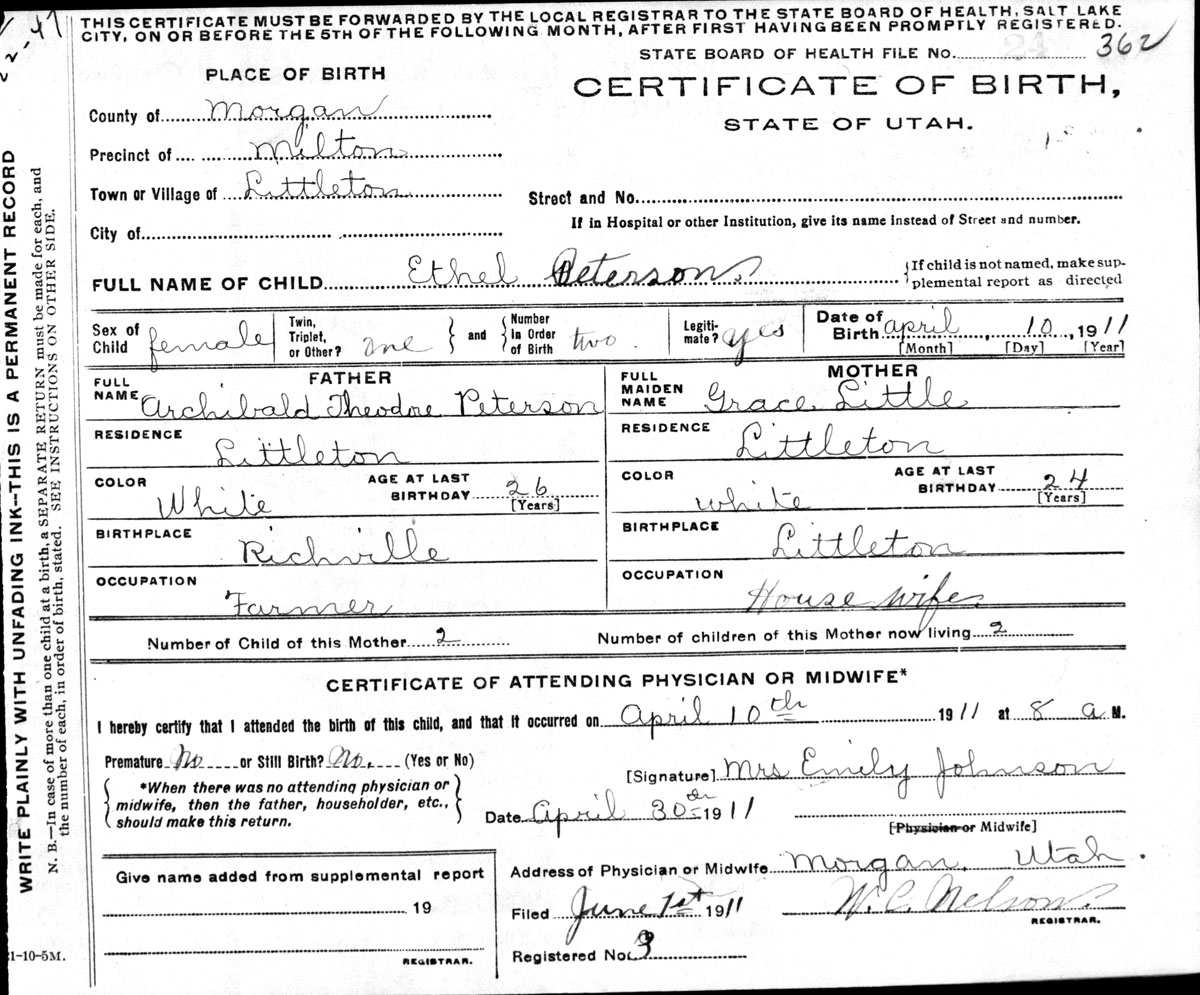 THIS CERTIFICATE MUST BE FORWARDED BY THE LOCAL REGISTRAR TO THE STATE BOARD OF HEALTH, SALT LAKE
CITY, ON OR BEFORE THE 5TH OF THE FOLLOWING MONTH, AFTER FIRST HAVING BEEN PROMPTLY REGISTERED.
STATE BOARD OF HEALTH FILE No. 24 362
PLACE OF BIRTH
CERTIFICATE OF BIRTH,
STATE OF UTAH.
County of Morgan
Precinct of Milton
Town or Village of Littleton
Street and No.
City of
If in Hospital or other Institution, give its name instead of Street and number.
FULL NAME OF CHILD Ethel Peterson.
{If child is not named, make sup-
plemental report as directed
Sex of Child female
Twin, Triplet, or Other? one
and
Number in Order of Birth two.
Legiti-mate? yes
Date of Birth april 10, 1911
[Month] [Day] [Year]
FATHER
FULL NAME Archibald Theodore Peterson
RESIDENCE Littleton
COLOR White
AGE AT LAST BIRTHDAY 26
[Years]
BIRTHPLACE Richville
OCCUPATION Farmer
MOTHER
FULL MAIDEN NAME Grace Little
RESIDENCE Littleton
COLOR white
AGE AT LAST BIRTHDAY 24
[Years]
BIRTHPLACE Littleton
OCCUPATION House wife
Number of Child of this Mother 2 Number of children of this Mother now living 2
CERTIFICATE OF ATTENDING PHYSICIAN OR MIDWIFE*
I hereby certify that I attended the birth of this child, and that it occurred on April 10th 1911 at 8 a M.
Premature No or Still Birth? No. (Yes or No)
*When there was no attending physician or
midwife, then the father, householder, etc.,
should make this return.
[Signature] Mrs Emily Johnson
Date April 30th 1911
[Physician or Midwife]
Give name added from supplemental report
19
REGISTRAR.
Address of Physician or Midwife Morgan, Utah.
Filed June 1st 1911 W. C. Nelson.
REGISTRAR.
Registered No. 3
WRITE PLAINLY WITH UNFADING INK--THIS IS A PERMANENT RECORD
N. B.—In case of more than one child at a birth, a SEPARATE RETURN must be made for each, and
the number of each, in order of birth, stated. SEE INSTRUCTIONS ON OTHER SIDE.
1-10-5M.